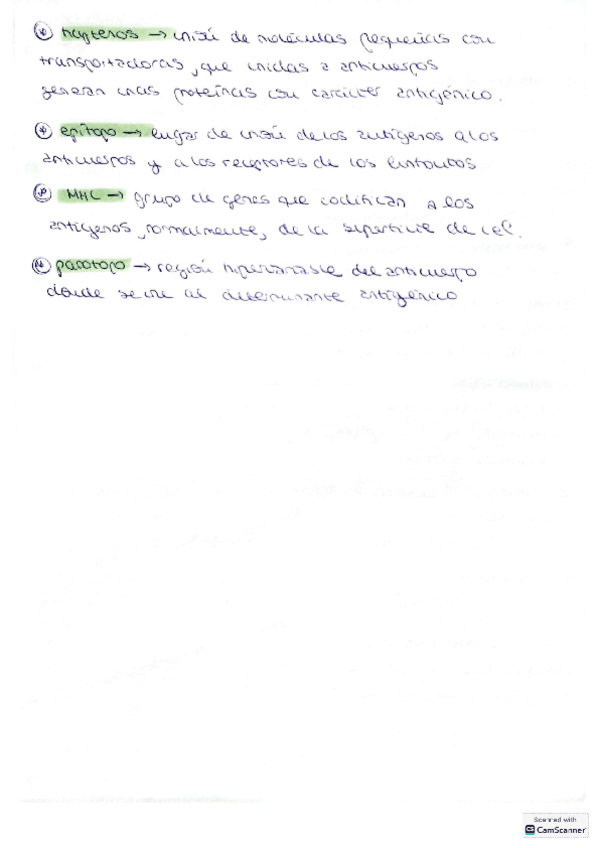 haptenos → unión de moléculas pequeñas con
transportadoras, que unidas a anticuerpos
generan unas proteínas con carácter antigénico.
epítopo → lugar de unión de los antígenos a los
anticuerpos y a los receptores de los linfocitos
MHC → grupo de genes que codifican a los
antígenos, normalmente, de la superficie de cel.
paratopo → región hipervariable del anticuerpo
donde se une al determinante antigénico
Scanned with
CamScanner